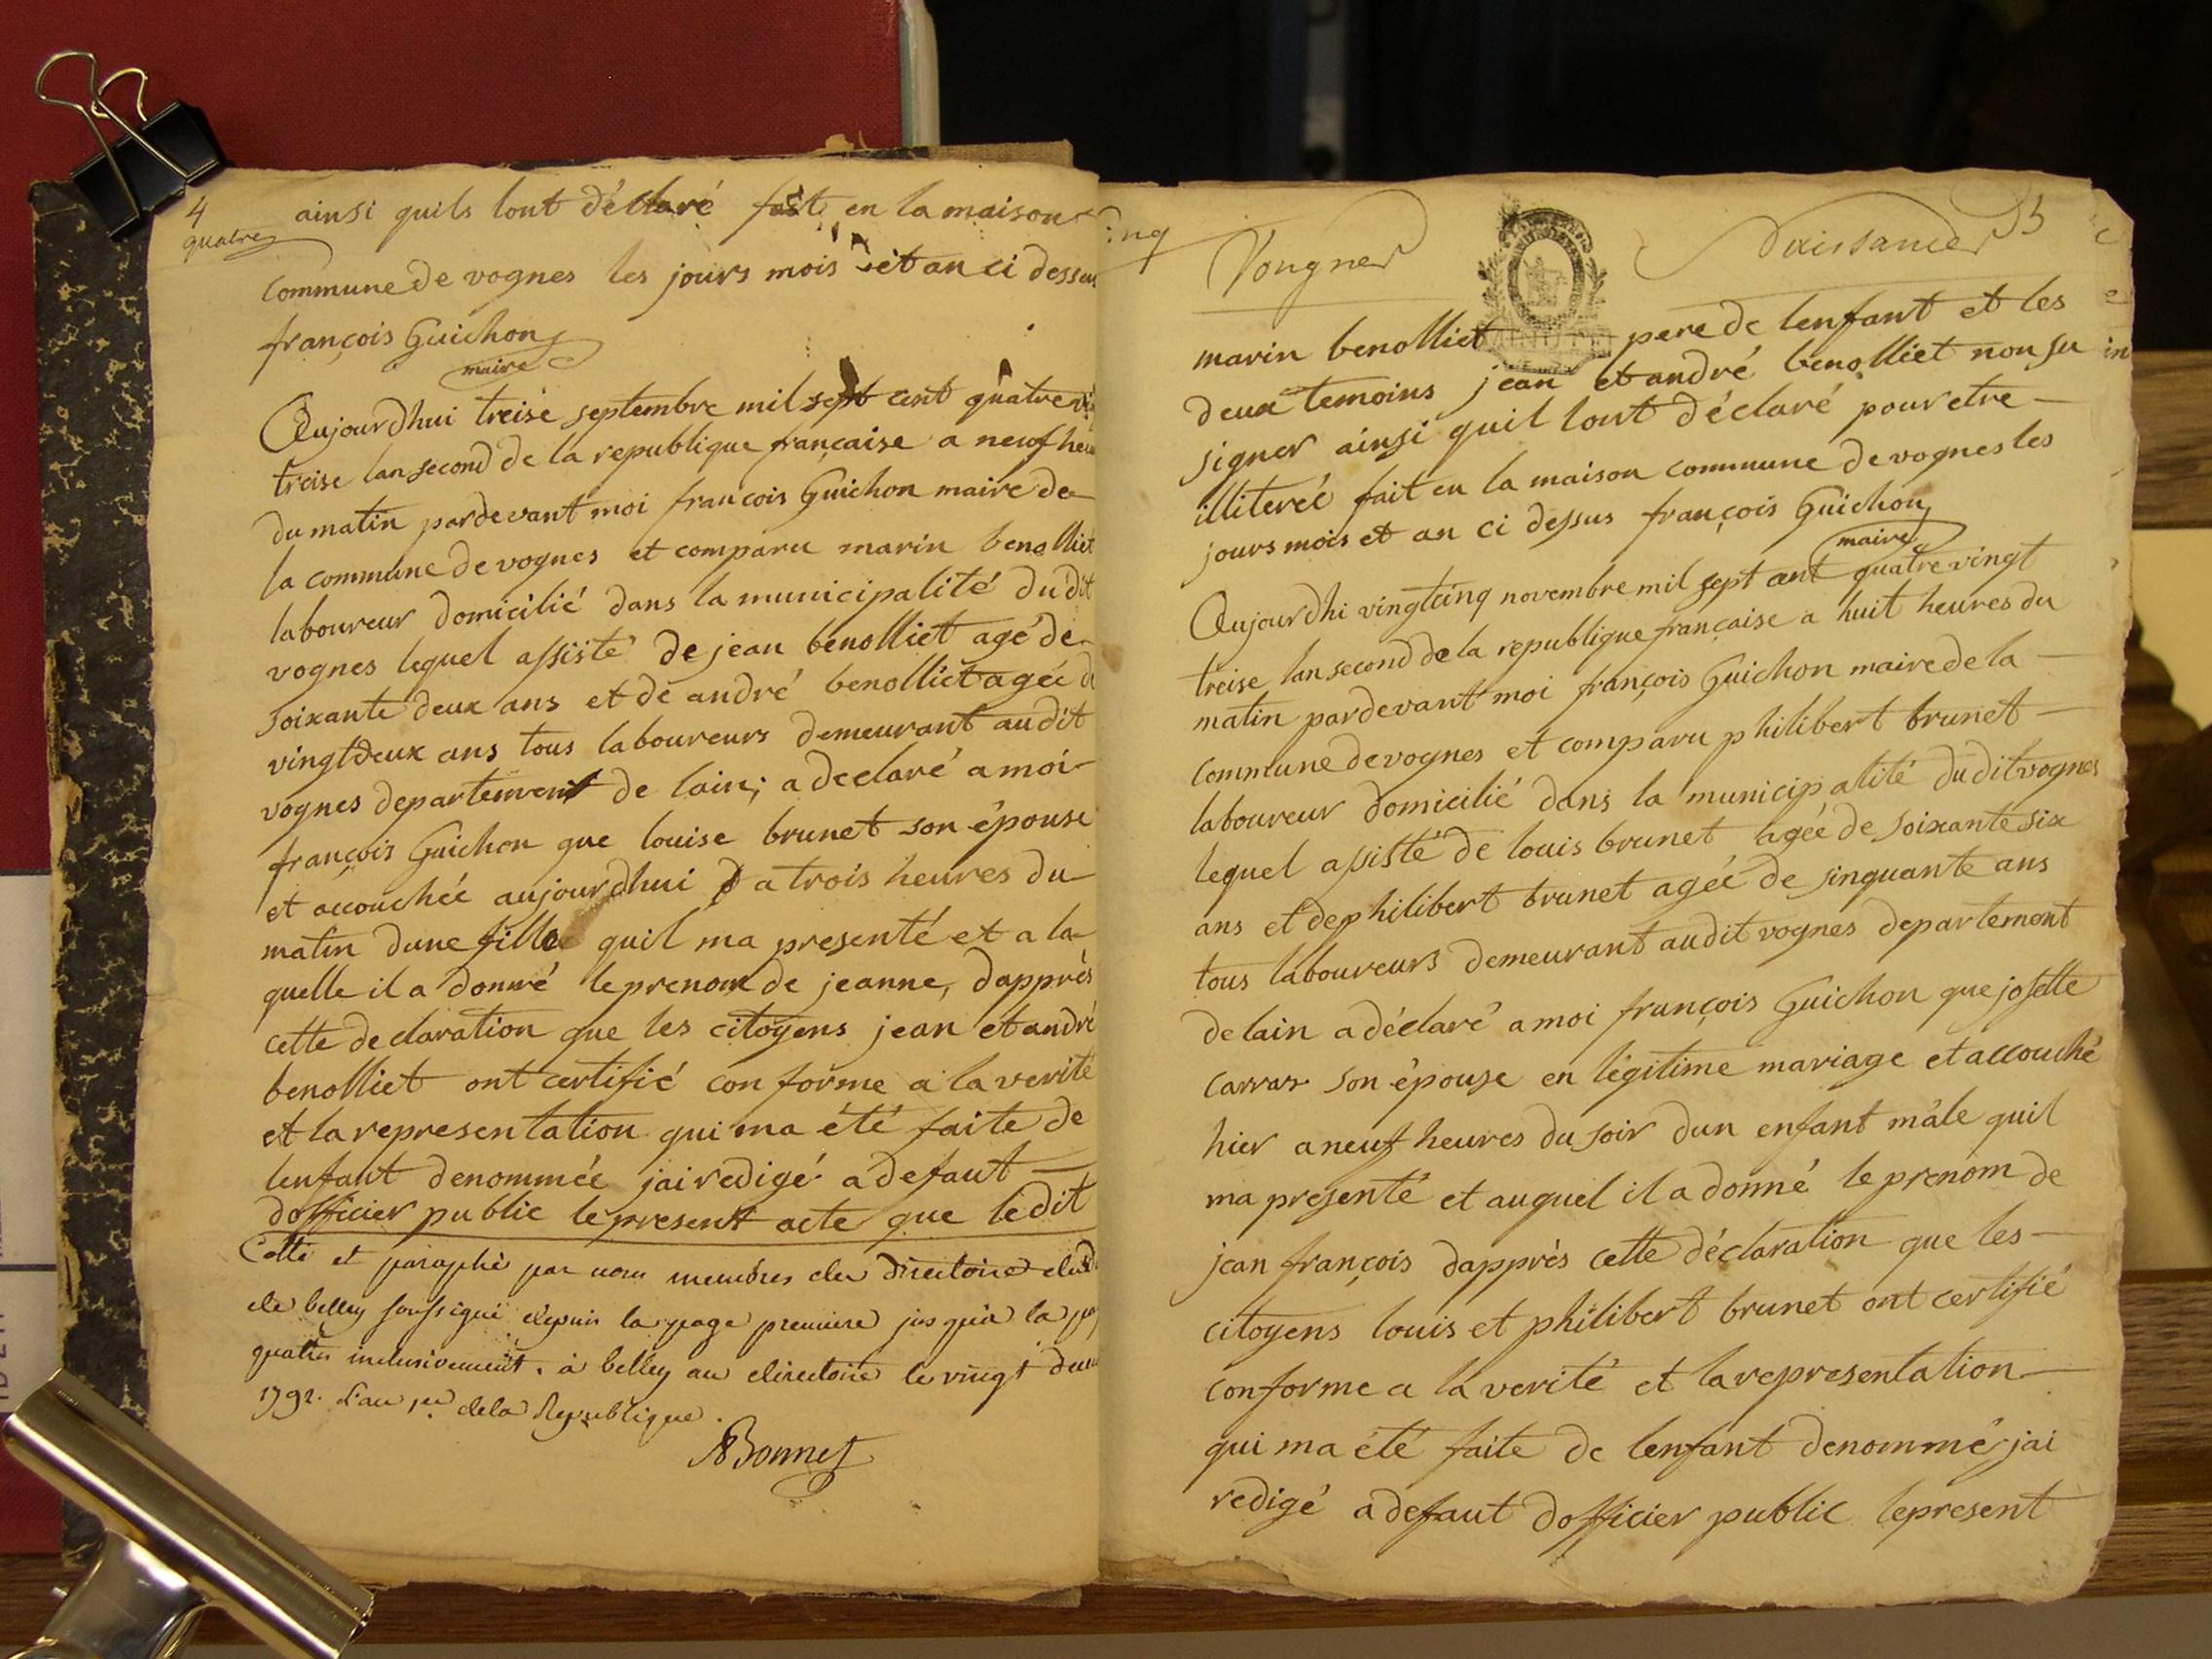 4
quatre
ainsi quils lont déclaré fait en la maison
commune de vognes les jours mois et an ci dessus
françois Guichon
maire
Aujourdhui treise septembre mil sept cent quatre
treise lan second de la republique française a neuf heu
du matin pardevant moi francois Guichon maire de
la commune de vognes et comparu marin benolliet
laboureur domicilié dans la municipalité dudit
vognes lequel assisté de jean benolliet agé de
soixante deux ans et de andré benolliet agée d
vingtdeux ans tous laboureurs demeurant audit
vognes departement de lain; a declaré a moi
françois Guichon que louise brunet son épouse
et accouchée aujourdhui a trois heures du
matin dune fille quil ma presenté et a la
quelle il a donné le prenom de jeanne, dapprès
cette declaration que les citoyens jean et andré
benolliet ont certifié conforme a la verité
et la representation qui ma été faite de
lenfant denommée jai redigé a defaut
dofficier public le present acte que ledit
Cotté et paraphé par nous membres du directoire du
de belley soussigné depuis la page premiere jusquà la
quatre inclusivement. à belley au directoire le vingt
1792. l'an 1er dela Republique.
Bonnet
inq
Vongnes
Naissances
5
MINUTE
marin benolliet pere de lenfant et les
deux temoins jean et andré benolliet non su
signer ainsi quil lont déclaré pour etre
illiterée fait en la maison commune de vognes les
jours mois et an ci dessus françois Guichon
maire
Aujourdhi vingtcinq novembre mil sept cent quatre vingt
treise lan second de la republique française a huit heures du
matin pardevant moi françois Guichon maire de la
commune de vognes et comparu philibert brunet
laboureur domicilié dans la municipalité dudit vognes
lequel assisté de louis brunet agée de soixante six
ans et de philibert brunet agée de sinquante ans
tous laboureurs demeurant audit vognes departement
de lain a déclaré a moi françois Guichon que josette
carrar son épouse en légitime mariage et accouché
hier a neuf heures du soir dun enfant mâle quil
ma presenté et auquel il a donné le prenom de
jean françois dapprès cette déclaration que les
citoyens louis et philibert brunet ont certifié
conforme a la verité et la representation
qui ma été faite de lenfant denommé jai
redigé a defaut dofficier public le present